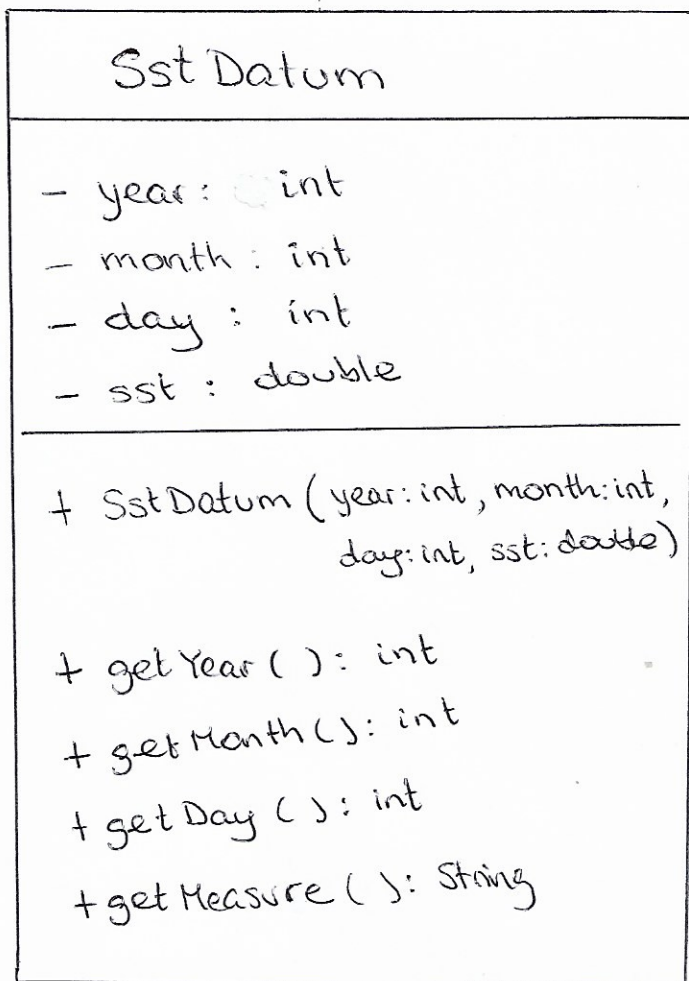 SstDatum
- year: int
- month: int
- day: int
- sst: double
+ SstDatum (year:int, month:int,
day:int, sst:double)
+ getYear( ): int
+ getMonth(): int
+ getDay (): int
+ getMeasure(): String